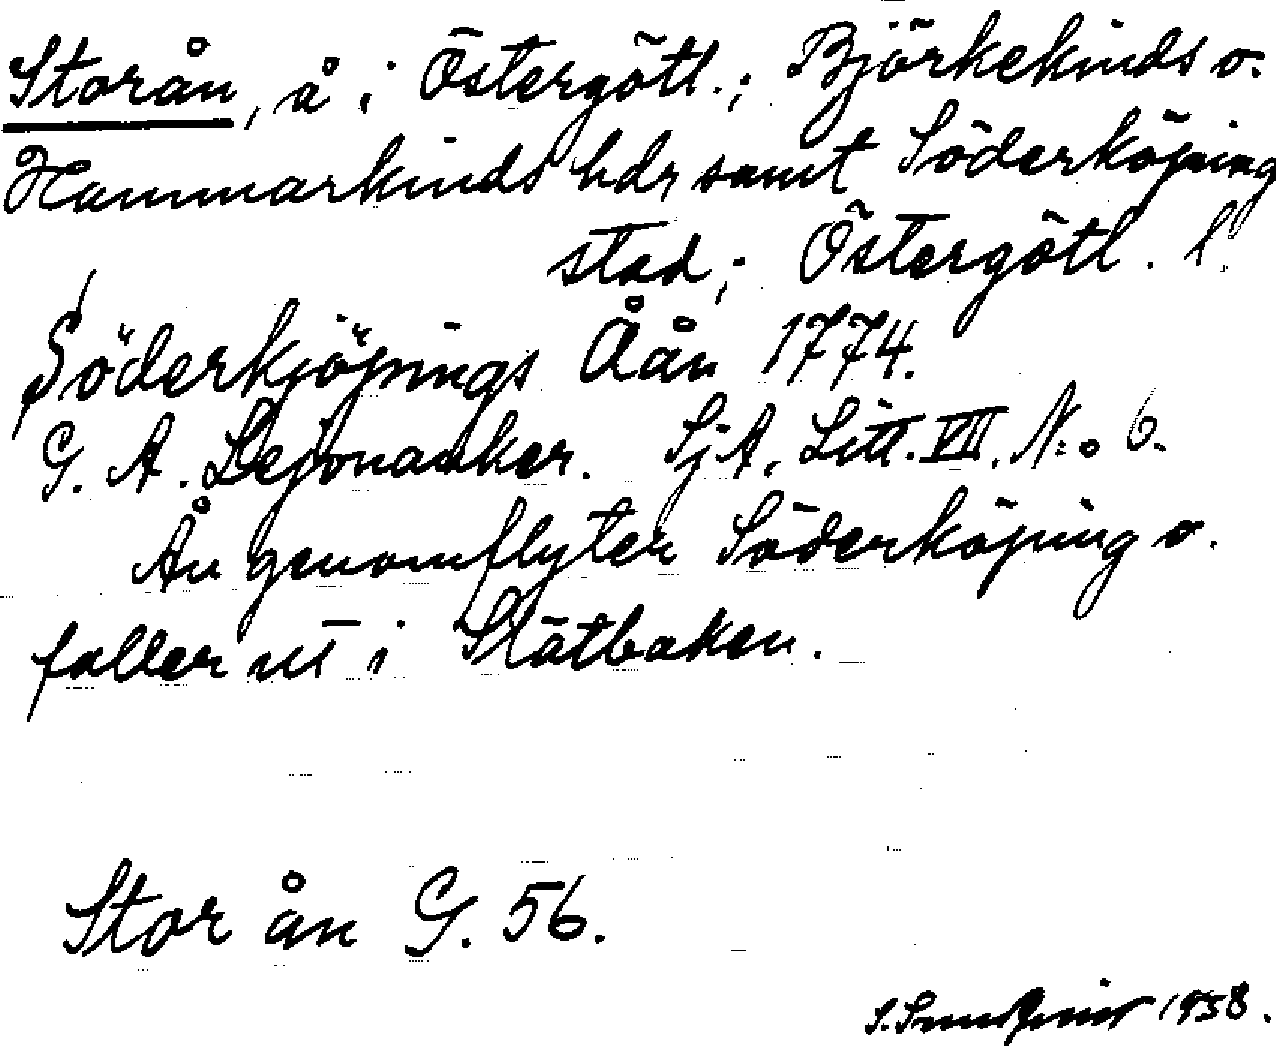 Storån, å i Östergötl.; Björkekinds o.
Hammarkinds hdr samt Söderköping
stad; Östergötl. l.
Söderkjöpings Åån 1774.
G. A. Lejonanker. SjA, Litt. VII. N:o 6.
Ån genomflyter Söderköping o.
faller ut i Slätbaken.
Stor ån G. 56.
S. 1958.